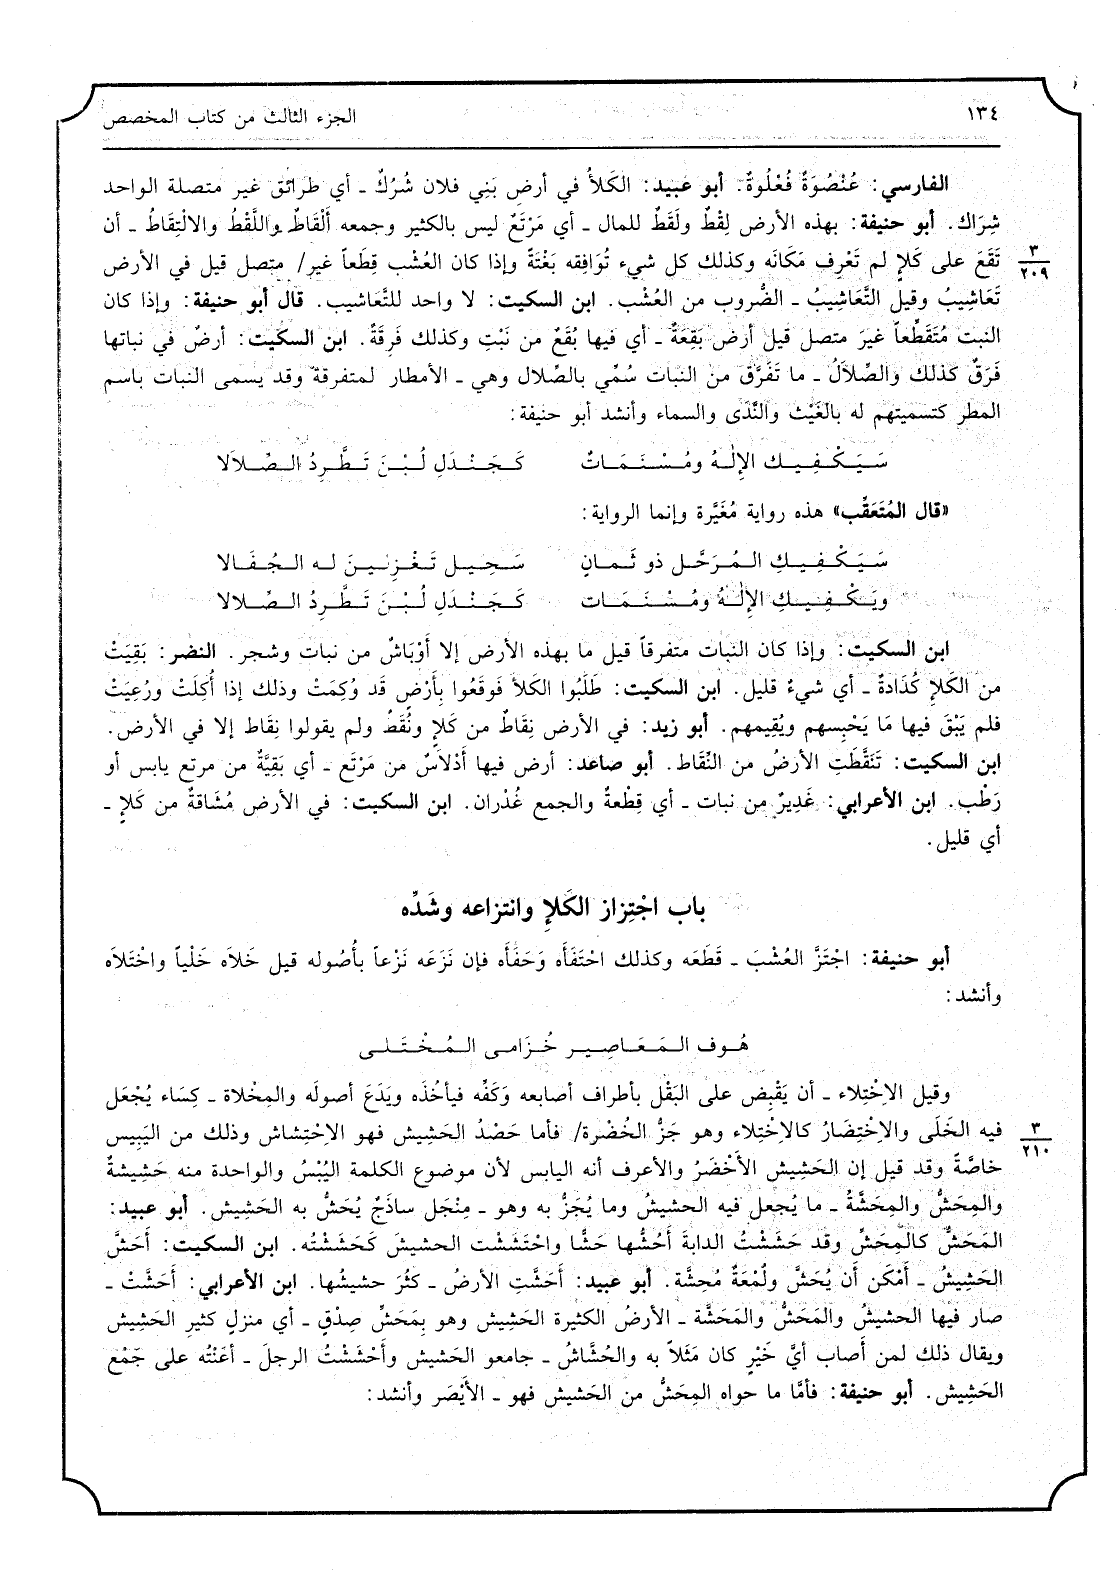 ١٣٤ الجزء الثالث من كتاب المخصص
الفارسي: عُنْصُوَةٌ فُعْلُوةٌ. أبو عبيد: الكَلأُ في أرضِ بَنِي فلان شُرُكٌ ـ أي طرائق غير متصلة الواحد
شِرَاك. أبو حنيفة: بهذه الأرض لِقْطٌ ولَقَطٌ للمال ـ أي مَرْتَعٌ ليس بالكثير وجمعه أَلْقَاطٌ واللَّقْطُ والالْتِقَاطُ ـ أن
تَقَعَ على كَلإٍ لم تَعْرِف مَكَانَه وكذلك كل شيء تُوَافِقه بَغْتَةً وإذا كان العُشْب قِطَعاً غير/ متصل قيل في الأرض
٣
٢٠٩
تَعَاشِيبُ وقيل التَّعَاشِيبُ ـ الضُّروب من العُشْب. ابن السكيت: لا واحد للتَّعَاشيب. قال أبو حنيفة: وإذا كان
النبت مُتَقَطِّعاً غيرَ متصل قيل أرض بَقِعَةٌ ـ أي فيها بُقَعٌ من نَبْتٍ وكذلك فَرِقَةٌ. ابن السكيت: أرضٌ في نباتها
فَرَقٌ كَذلك والصِّلاَلُ ـ ما تَفَرَّق من النبات سُمِّي بالصِّلال وهي ـ الأمطار لمتفرقة وقد يسمى النبات باسم
المطر كتسميتهم له بالغَيْث والنَّدَى والسماء وأنشد أبو حنيفة:
سَيَكْفِيك الإلٰهُ ومُسْنَمَاتٌ كَجَنْدَلِ لُبْنَ تَطَّرِدُ الصِّلاَلا
«قال المُتَعَقِّب» هذه رواية مُغَيَّرة وإنما الرواية:
سَيَكْفِيكِ المُرَحَّل ذو ثَمانٍ سَحِيل تَغْزِنِينَ له الجُفَالا
ويَكْفِيكِ الإلٰهُ ومُسْنَمَات كَجَنْدَلِ لُبْنَ تَطَّرِدُ الصِّلالا
ابن السكيت: وإذا كان النبات متفرقاً قيل ما بهذه الأرض إلا أَوْبَاشٌ من نبات وشجر. النضر: بَقِيَتْ
من الكَلإِ كُدَادةٌ ـ أي شيءٌ قليل. ابن السكيت: طَلَبُوا الكَلأَ فَوقَعُوا بِأَرْضٍ قَد وُكِمَتْ وذلك إذا أُكِلَتْ ورُعِيَتْ
فلم يَبْقَ فيها مَا يَحْبِسهم ويُقِيمهم. أبو زيد: في الأرض نِقَاطٌ من كَلإٍ ونُقَطٌ ولم يقولوا نِقَاط إلا في الأرض.
ابن السكيت: تَنَقَّطَتِ الأرضُ من النِّقَاط. أبو صاعد: أرض فيها أَدْلاَسٌ من مَرْتَع ـ أي بَقِيَّةٌ من مرتع يابس أو
رَطْب. ابن الأعرابي: غَدِيرٌ مِن نبات ـ أي قِطْعةٌ والجمع غُدْران. ابن السكيت: في الأرض مُشَاقةٌ من كَلإٍ ـ
أي قليل.
باب اجْتِزاز الكَلإِ وانتزاعه وشَدِّه
أبو حنيفة: اجْتَزَّ العُشْبَ ـ قَطَعَه وكذلك احْتَفَأَه وَحَفَأَه فإن نَزَعَه نَزْعاً بأُصُوله قيل خَلاَه خَلْياً واخْتَلاَه
وأنشد:
هُوف المَعَاصِير خُزَامى المُخْتَلى
وقيل الاِخْتِلاء ـ أن يَقْبِض على البَقْل بأطراف أصابعه وَكَفِّه فيأخُذَه ويَدَعَ أصولَه والمِخْلاة ـ كِسَاء يُجْعَل
فيه الخَلَى والاِخْتِضَارُ كالاِخْتِلاء وهو جَزُّ الخُضْرة/ فأما حَصْدُ الحَشِيش فهو الاِحْتِشاش وذلك من اليَبِيس
٣
٢١٠
خاصَّةً وقد قيل إن الحَشِيش الأخْضَرُ والأعرف أنه اليابس لأن موضوع الكلمة اليُبْسُ والواحدة منه حَشِيشةٌ
والمِحَشُّ والمِحَشَّةُ ـ ما يُجعل فيه الحشيشُ وما يُجَزُّ به وهو ـ مِنْجَل ساذَجٌ يُحَشُّ به الحَشِيش. أبو عبيد:
المَحَشُّ كالمِحَشِّ وقد حَشَشْتُ الدابةَ أَحُشُّها حَشًّا واحْتَشَشْت الحشيشَ كَحَشَشْتُه. ابن السكيت: أَحَشَّ
الحَشِيشُ ـ أَمْكَن أَن يُحَشَّ ولُمْعَةٌ مُحِشَّة. أبو عبيد: أَحَشَّتِ الأرضُ ـ كَثُرَ حشيشُها. ابن الأعرابي: أَحَشَّتْ ـ
صار فيها الحشيشُ والمَحَشُّ والمَحَشَّة ـ الأرضُ الكثيرة الحَشِيش وهو بِمَحَشِّ صِدْقٍ ـ أي منزلٍ كثيرِ الحَشيش
ويقال ذلك لمن أَصاب أيَّ خَيْرٍ كان مَثَلاً به والحُشَّاشُ ـ جامعو الحَشيش وأَحْشَشْتُ الرجلَ ـ أعَنْتُه على جَمْع
الحَشِيش. أبو حنيفة: فأمَّا ما حواه المِحَشُّ من الحَشيش فهو ـ الأَيْصَر وأنشد: